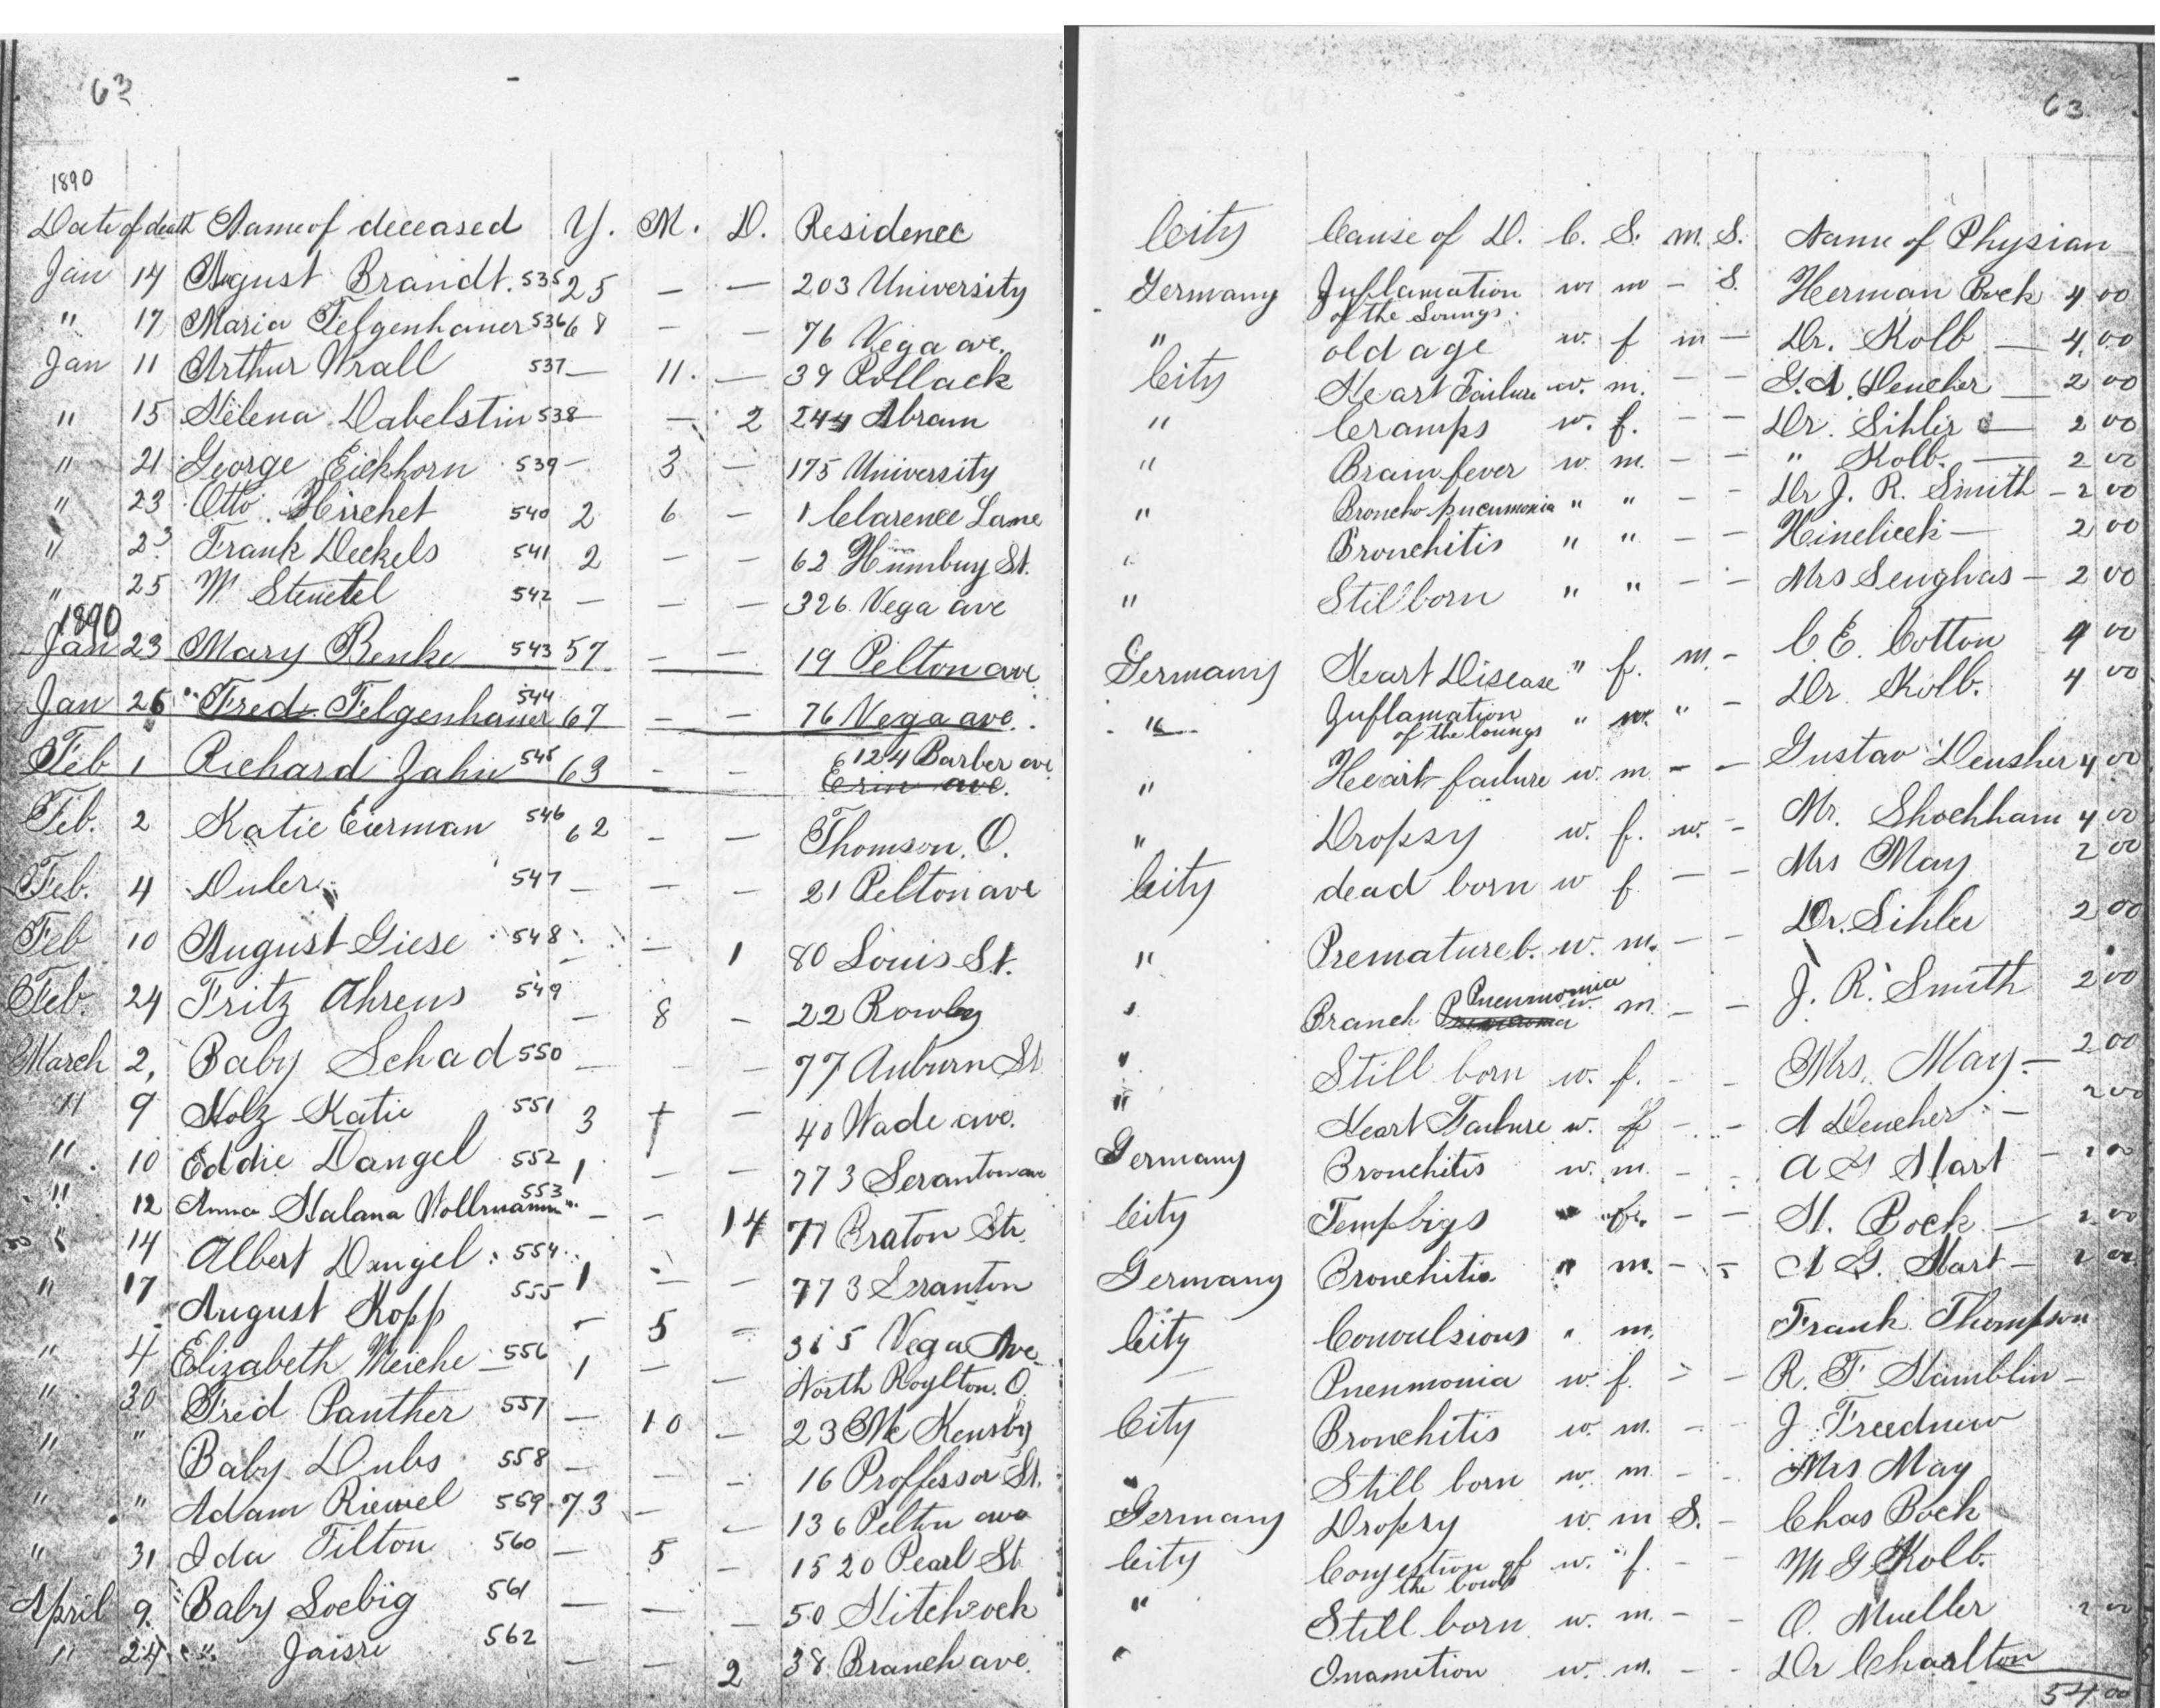 63
1890
Date of death Name of deceased Y. M. D. Residence
Jan 14 August Brandt. 535 25 — — 203 University
" 17 Maria Felgenhauer 536 68 — — 76 Vega ave.
Jan 11 Arthur Wrall 537 — 11. — 39 Pollack
" 15 Helena Dabelstin 538 — — 2 244 Abram
" 21 George Eickhorn 539 — 3 — 175 University
" 23 Otto Hirchet 540 2 6 — 1 Clarence Lane
" 23 Frank Deckels 541 2 — — 62 St.
" 25 W. 542 — — — 326 Vega ave
1890
Jan 23 Mary Benke 543 57 — — 19 Pelton ave
Jan 26 " Fred. Felgenhauer 544 67 — — 76 Vega ave.
Feb 1 Richard Zahn 545 63 — — 6 124 Barber ave
Erin ave.
Feb. 2 Katie Eierman 546 62 — — Thomson. O.
Feb. 4 Duler 547 — — — 21 Pelton ave
Feb 10 August Giese 548 — — 1 80 Louis St.
Feb. 24 Fritz Ahrens 549 — 8 — 22 Rowley
March 2, Baby Schad 550 — — — 77 Auburn St
" 9 Holz Katie 551 3 † — 40 Wade ave.
" 10 Eddie Dangel 552 1 — — 773 Scranton ave
" 12 Anna Halana Vollmann 553 — — 14 77 Braton Str.
" 14 Albert Dangel 554 1 — — 773 Scranton
" 17 August Kopp 555 — 5 — 315 Vega Ave
" 4 Elizabeth Meiche 556 1 — — North Roylton. O.
" 30 Fred Panther 557 — 10 — 23 Mc Kensby
" " Baby Dubs 558 — — — 16 Proffessor St.
" " Adam Riemel 559 73 — — 136 Pelton ave
" 31 Ida Tilton 560 — 5 — 1520 Pearl St
April 9. Baby Loebig 561 — — — 50 Hitchcock
" 24 " Jaisre 562 — — 2 38 Branch ave.
63
City Cause of D. C. S. M. S. Name of Physian
Germany Inflamation w m — S. Herman Bock 4 00
of the Loungs.
" old age w. f m — Dr. Kolb — 4.00
City Heart Failure w. m. — — G.A. Deucher — 2 00
" Cramps w. f. — — Dr. Sihler — 2 00
" Brain fever w. m. — — " Kolb. — 2 00
" Broncho pneumonia " " — — Dr J. R. Smith — 2 00
" Bronchitis " " — — — 2 00
" Stillborn " " — — Mrs Senghas — 2 00
Germany Heart Disease " f. m. — C E. Cotton 4 00
" Inflamation " m. " — Dr. Kolb. 4 00
of the loungs
" Heart failure w. m — — Gustav Deusher 4 00
" Dropsy w. f. w. — Mr. Shochham 4 00
City dead born w f. — — Mrs May 2 00
" Premature b. w. m. — — Dr. Sihler 2 00
" Branch Pneumonia w. m. — — J. R. Smith 2 00
" Still born w. f. — — Mrs. May. — 2 00
" Heart Failure w. f — — A Deucher — 2 00
Germany Bronchitis w. m. — — A G Hart — 2 00
City Tempbigs " f. — — H. Bock — 2 00
Germany Bronchitis " m. — — A G. Hart — 2 00
City Convulsions " m. Frank Thompson
— Pneumonia w. f. — — R. F. Hamblin —
City Bronchitis w. m. — — J.
" Still born w. m — — Mrs May
Germany Dropsy w. m S. — Chas Bock
City Congestion of w. f. — — M G Kolb.
the bowls
" Still born w. m. — — O. Mueller 2 00
" Inamition w. m. — — Dr Charlton
54 00